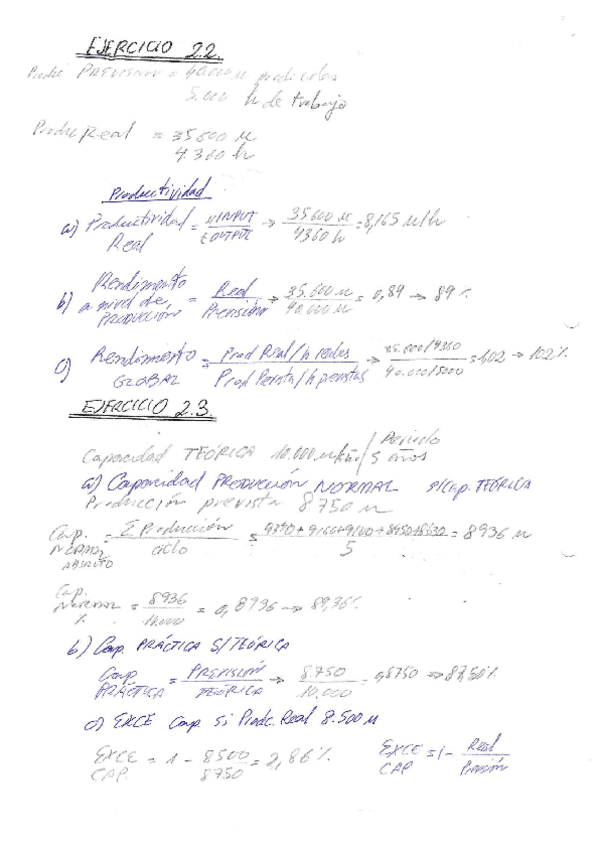 EJERCICIO 2.2.
Produc PREVISION = 40.000 u producidas
5.000 h de trabajo
Produc Real = 35600 u
4.360 h
Productividad
a) Productividad Real = INPUT / OUTPUT → 35600 u / 4360 h = 8,165 u/h
b) Rendimiento a nivel de PRODUCCIÓN = Real / Previsión → 35.600 u / 40.000 u = 0,89 → 89 %
c) Rendimiento GLOBAL = Prod Real/h reales / Prod Prevista/h previstas → 35.600/4360 / 40.000/5000 = 1,02 → 102%
EJERCICIO 2.3.
Capacidad TEÓRICA 10.000 u / Periodo 5 años
a) Capacidad PRODUCCIÓN NORMAL s/Cap. TEÓRICA
Producción prevista 8750 u
Cap. NORMAL ABSOLUTO = Σ Producción / ciclo = 9340+9160+9100+8450+8630 / 5 = 8936 u
Cap. NORMAL % = 8936 / 10.000 = 0,8936 → 89,36%
b) Cap. PRÁCTICA S/TEÓRICA
Cap. PRÁCTICA = PREVISIÓN / TEÓRICA → 8.750 / 10.000 = 0,8750 → 87,50%
c) EXCE Cap si Produc. Real 8.500 u
EXCE CAP. = 1 - 8500 / 8750 = 2,86% EXCE CAP = 1 - Real / Previsión